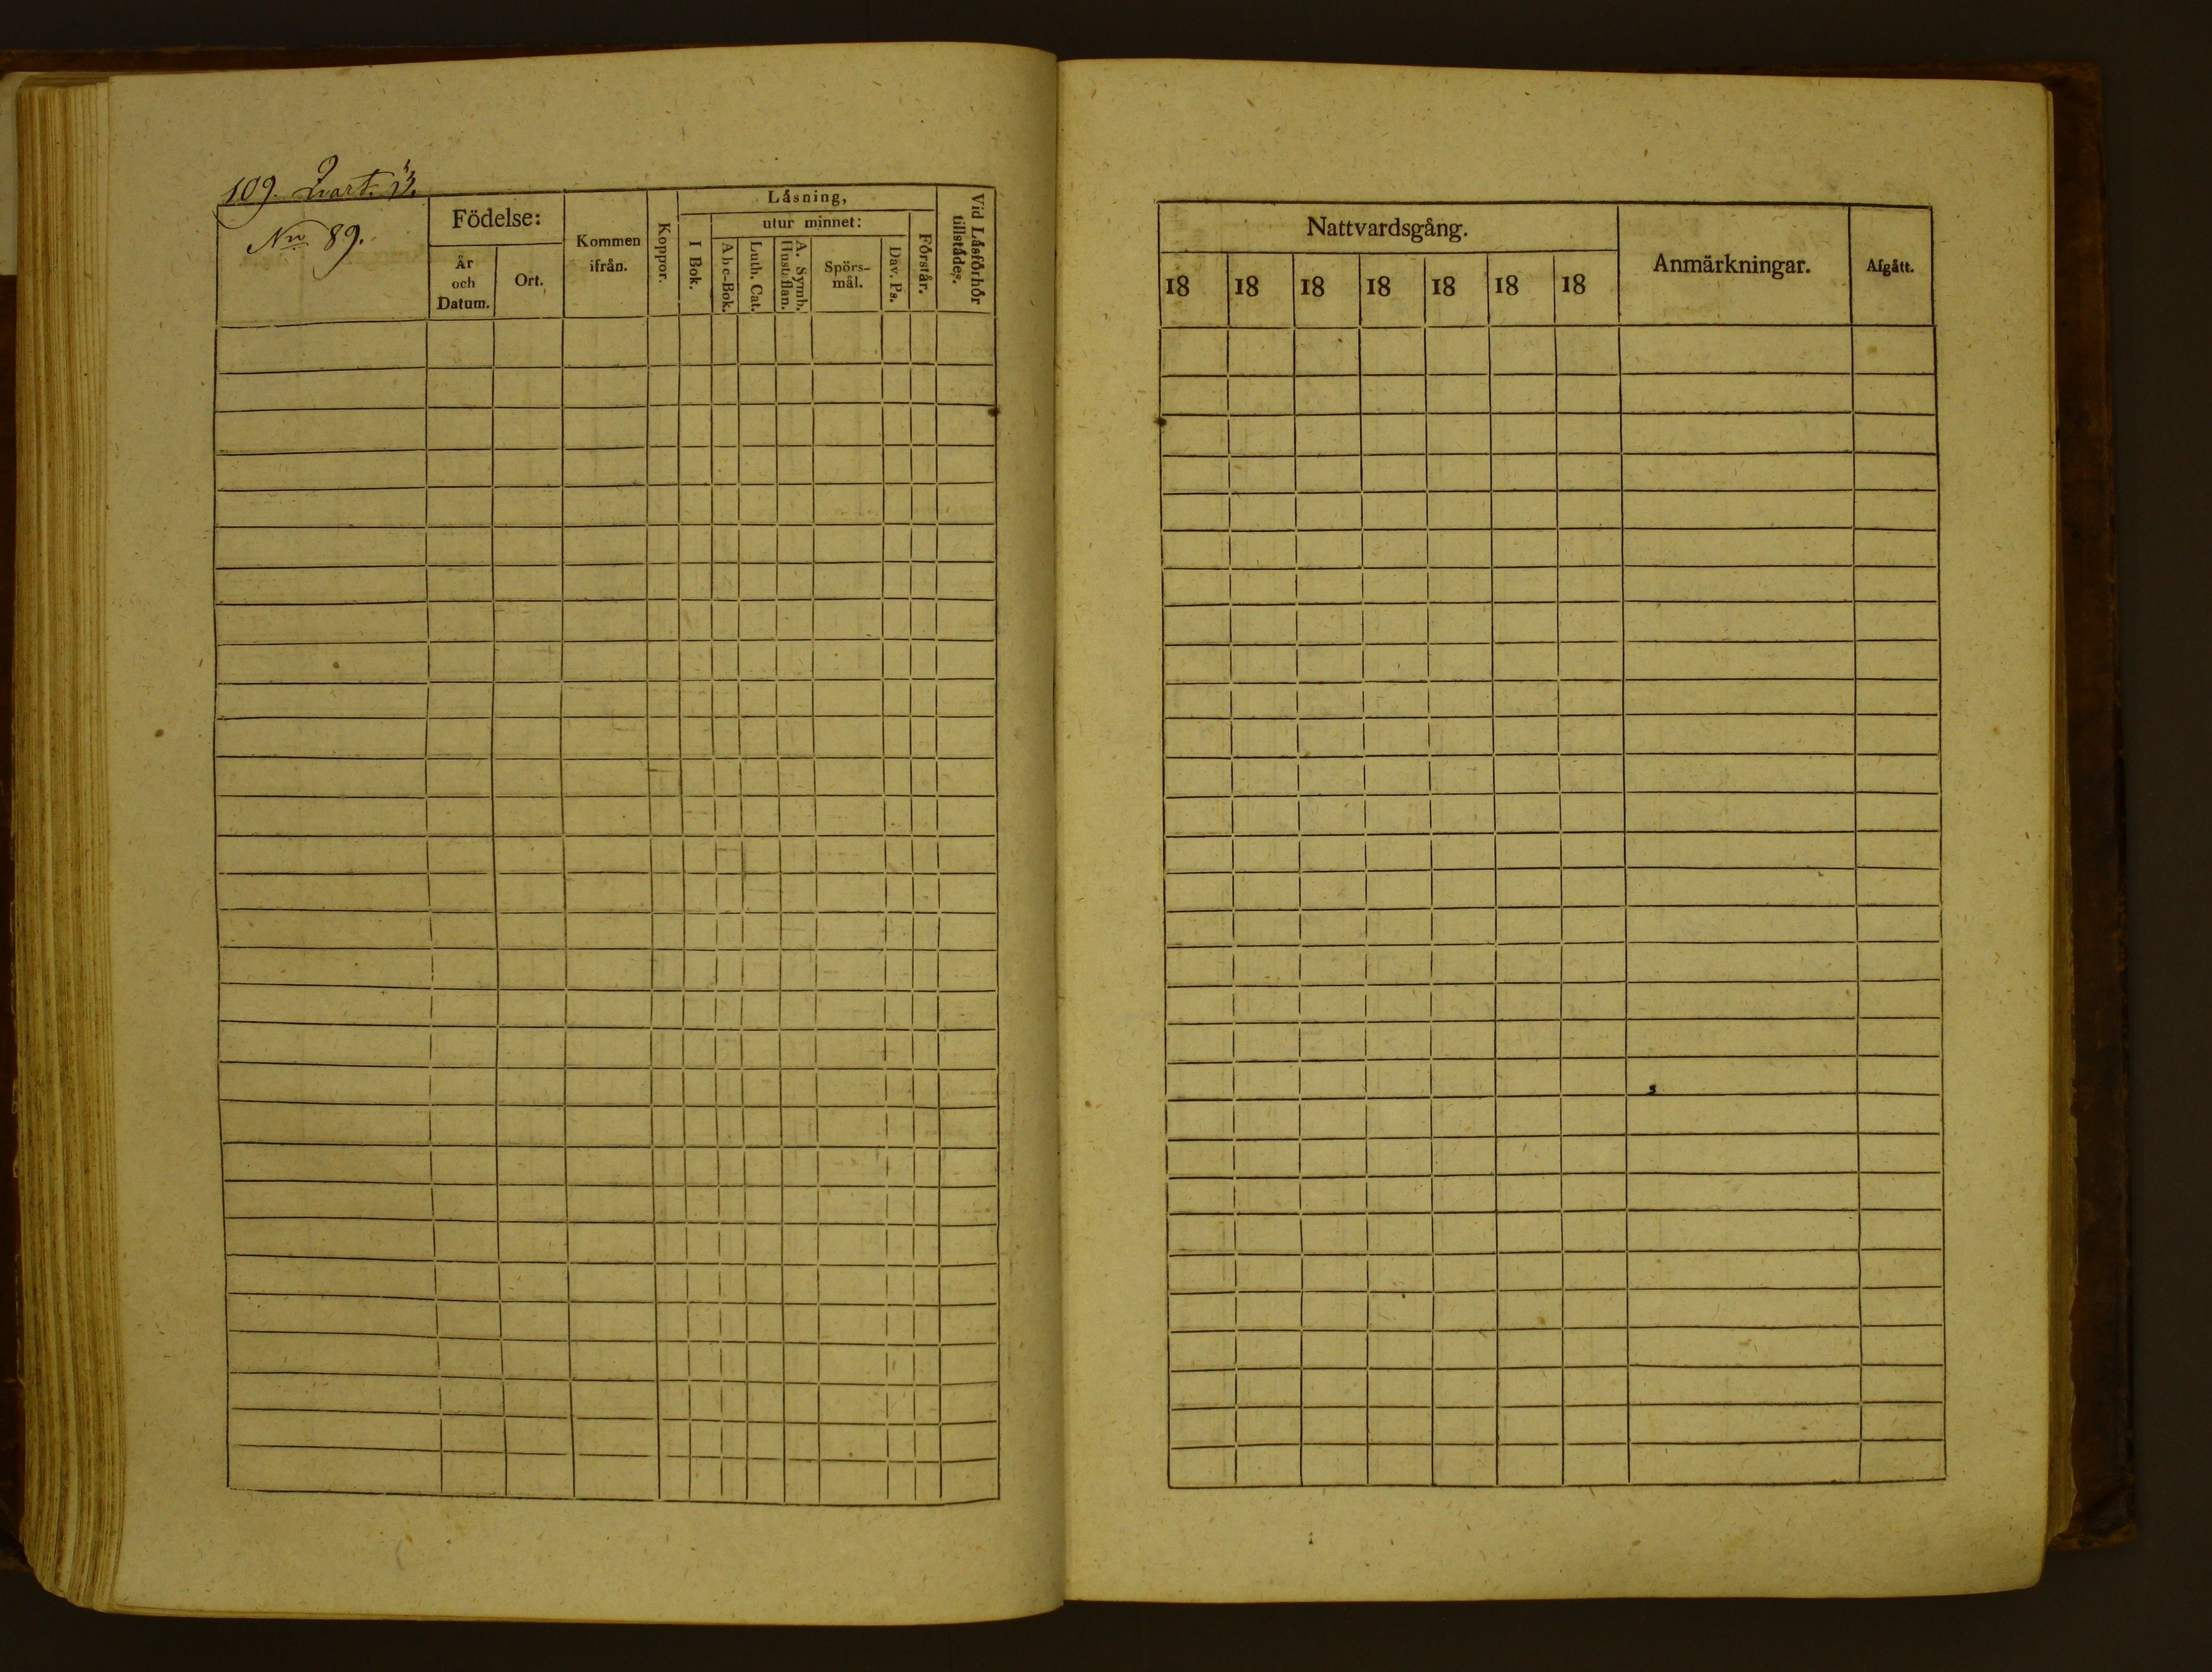 109. Qvart. 13.
No 89.
Födelse:
År
och
Datum.
Ort.
Kommen
ifrån.
Koppor.
Läsning,
utur minnet:
I Bok.
Abc-Bok.
Luth. Cat.
A. Symb.
Hustaflan.
Spörs-
mål.
Dav. Ps.
Förstår.
Vid Läsförhör
tillstädes.
Nattvardsgång.
18 18 18 18 18 18 18
Anmärkningar.
Afgått.